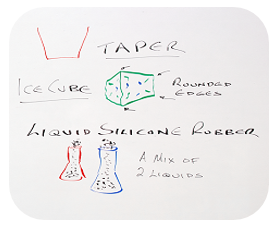 TAPER
ICE CUBE
ROUNDED
EDGES
LIQUID SILICONE RUBBER
A MIX OF
2 LIQUIDS